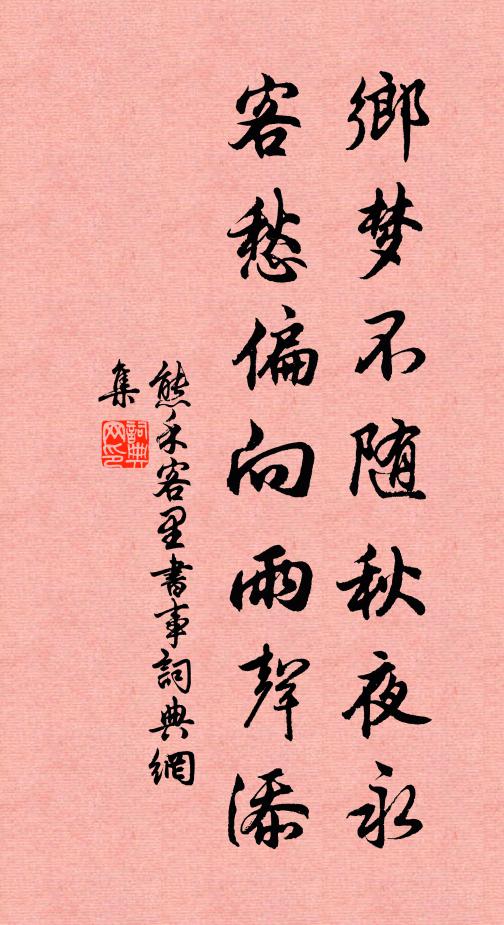 鄉梦不随秋夜永
客愁偏向雨聲添
熊禾客里書事詞典網
集
詞典
网印